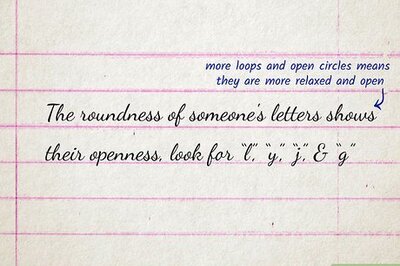 more loops and open circles means
they are more relaxed and open
The roundness of someone's letters shows
their openness, look for "l", "y," "j", & "g"